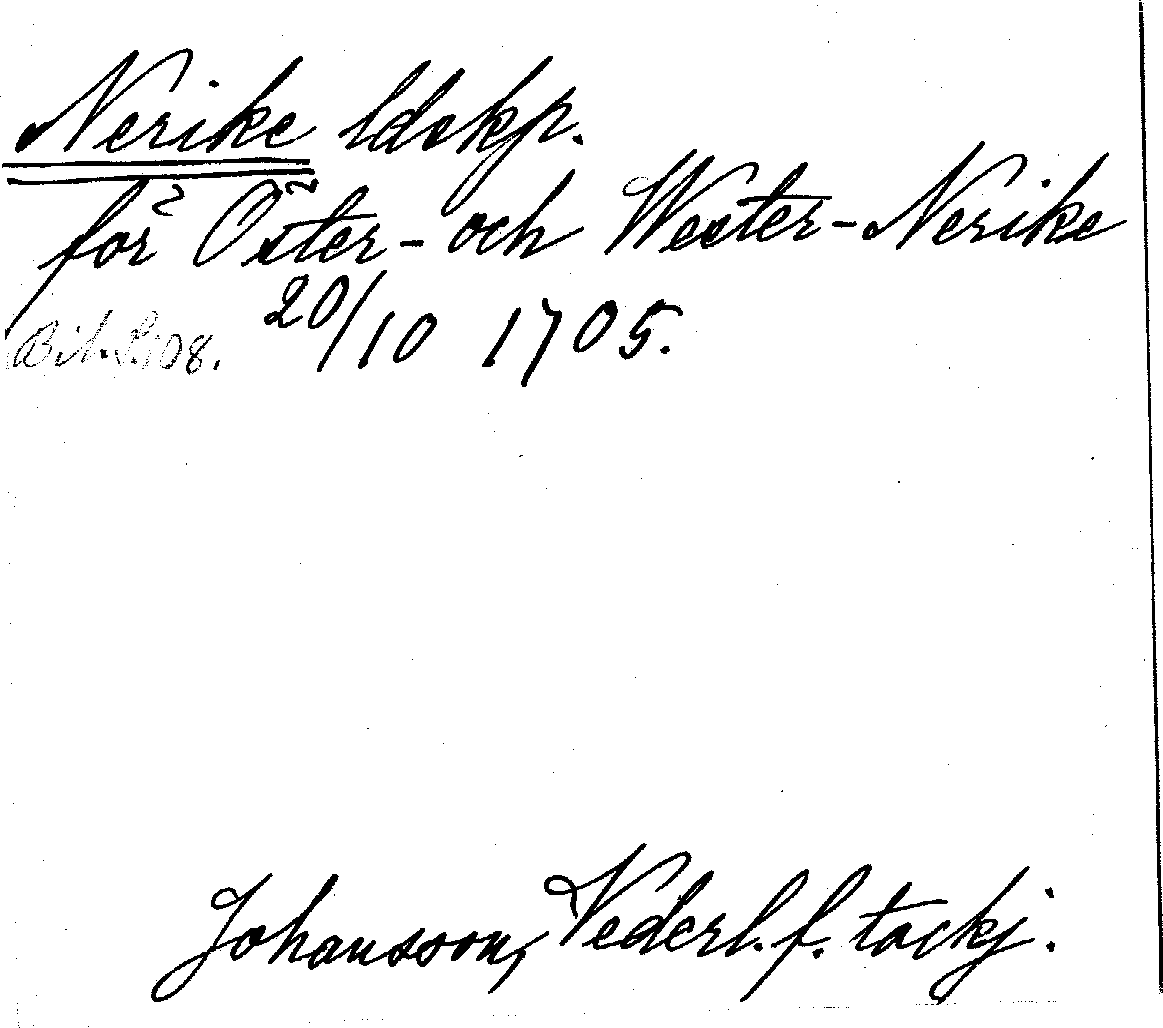 Nerike ldskp.
för Öster- och Wester-Nerike
20/10 1705.
Bil. S. 108.
Johansson, Vederl. f. tackj.